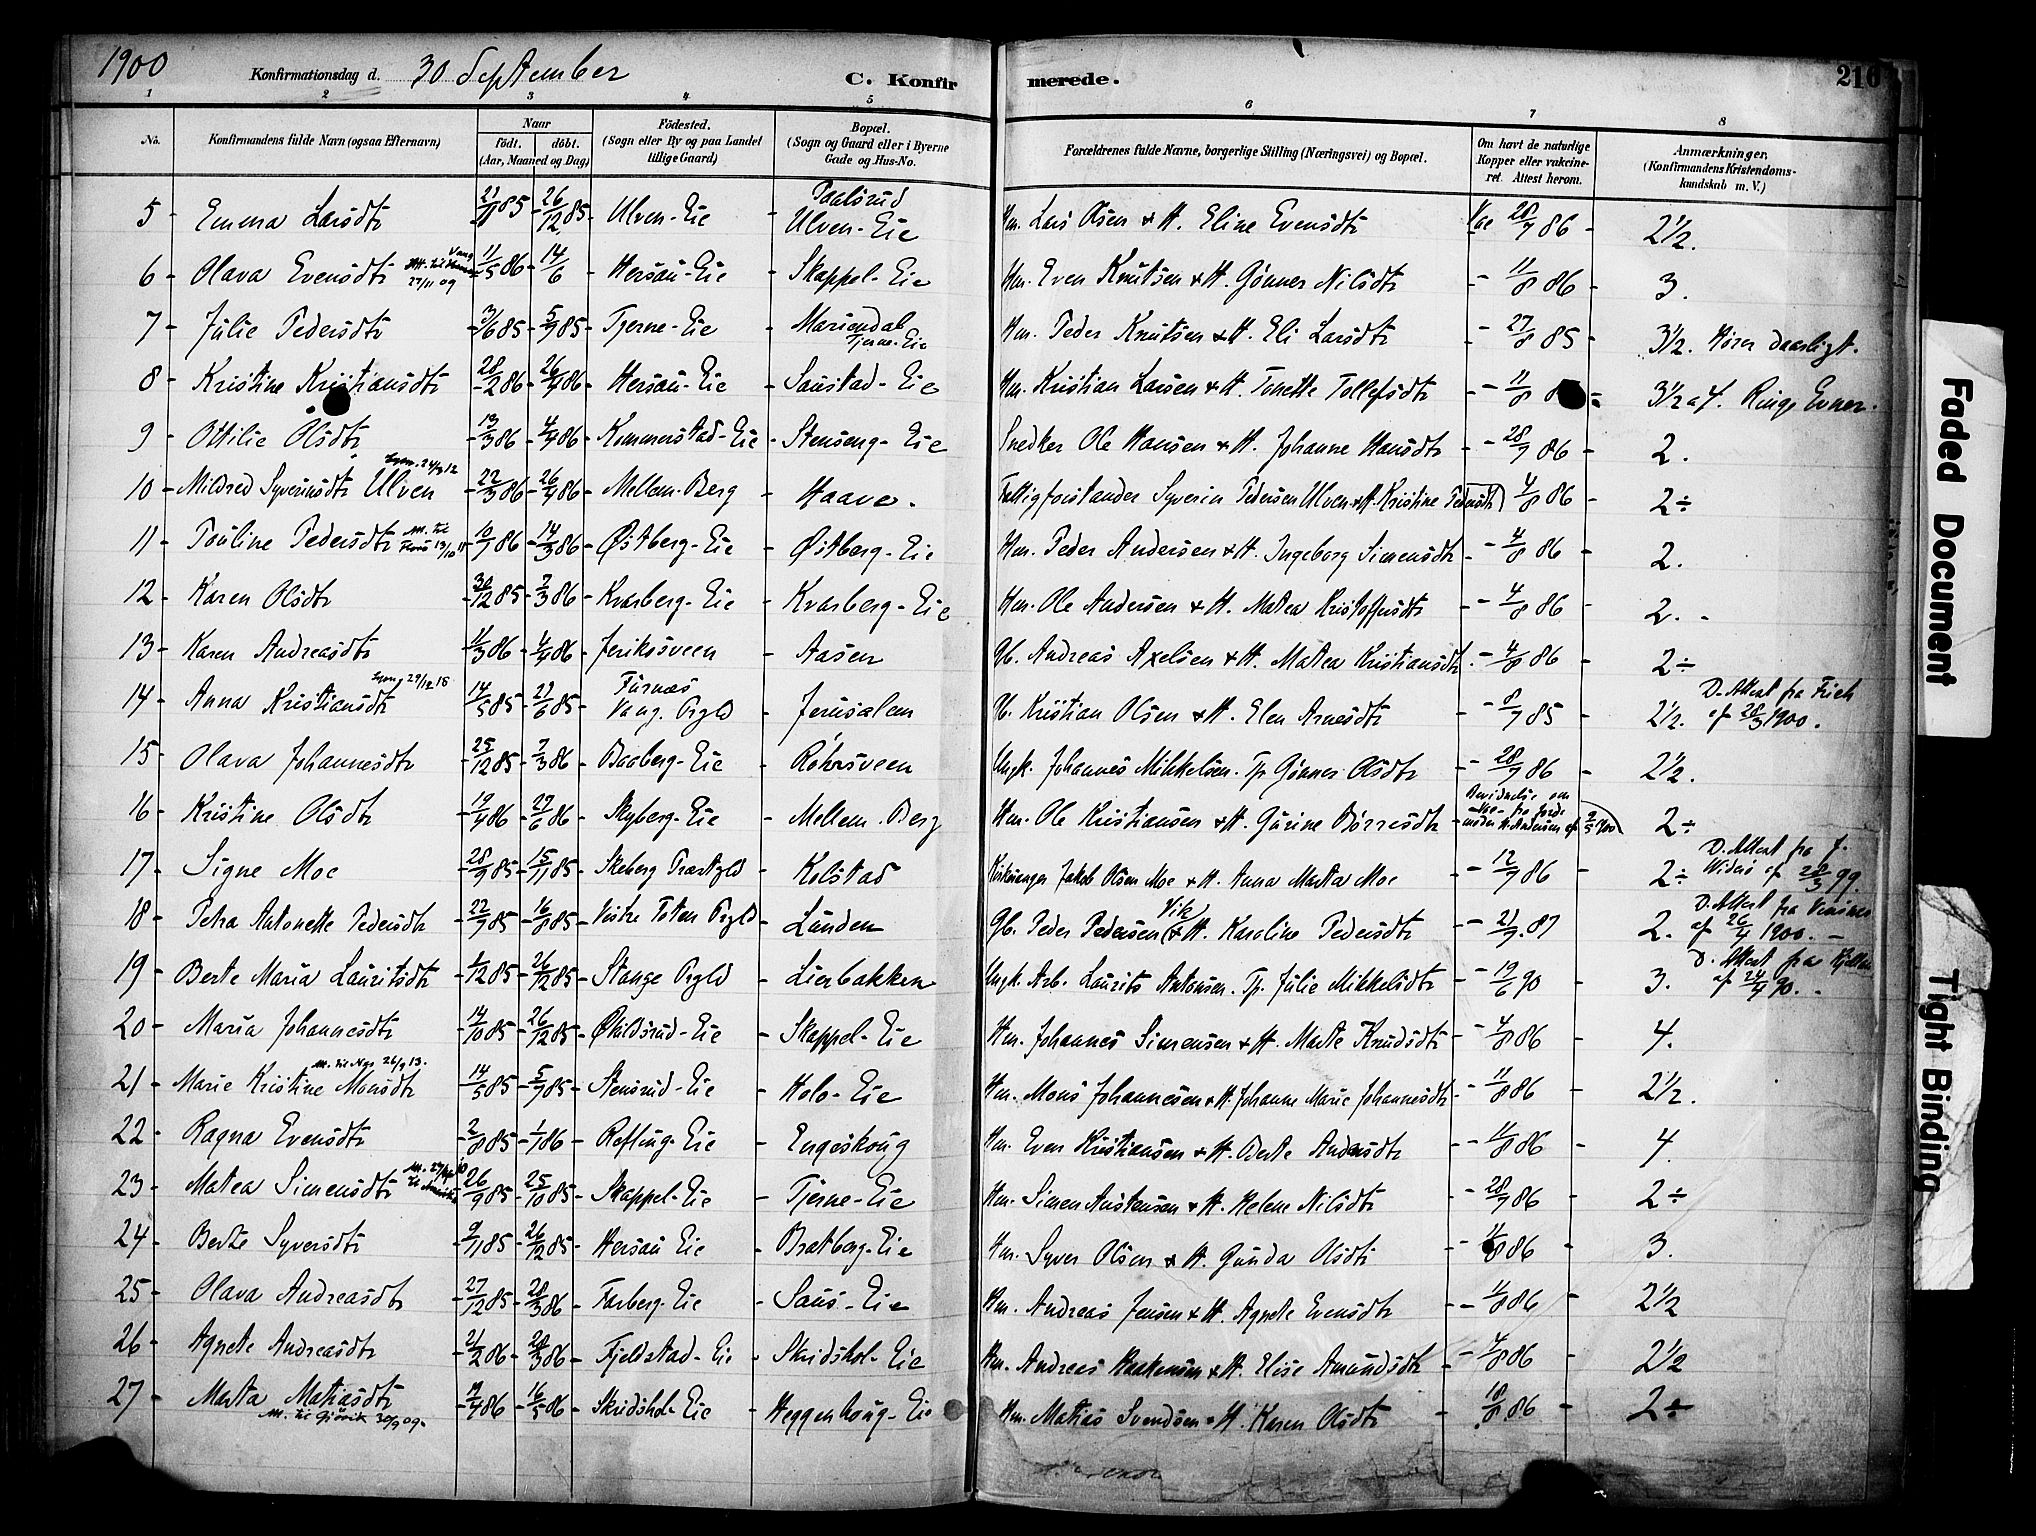 1900 Konfirmationsdag d. 30 September C. Konfir merede. 216
1 2 3 4 5 6 7 8
No. Konfirmandens fulde Navn (ogsaa Efternavn) Naar födt. döbt. (Aar, Maaned og Dag) Födested. (Sogn eller By og paa Landet tillige Gaard) Bopæl. (Sogn og Gaard eller i Byerne Gade og Hus-No. Forældrenes fulde Navne, borgerlige Stilling (Næringsvei) og Bopæl. Om havt de naturlige Kopper eller vakcineret. Attest herom. Anmærkninger. (Konfirmandens Kristendomskundskab m. V.)
5 - Emma Larsdtr 85 - 26/12 85 - Ulven - Eie - Paalsrud Ulven - Eie Hm. Lars Olsen & H. Eline Evensdtr Vac 28/7 86 - 2½.
6 - Olava Evensdtr 27/11 09 11/5 86 - 14/6 - Hersau - Eie - Skappel - Eie Hm. Even Knutsen & H. Gønner Nilsdtr - 11/8 86 - 3.
7 - Julie Pedersdtr 3/6 85 - 5/7 85 - Tjerne - Eie - Mariendal Tjerne - Eie Hm. Peder Knutsen & H. Eli Larsdtr - 27/8 85 - 3½. Hører daarligt.
8 - Kristine Kristiansdtr 28/2 86 - 26/4 86 - Hersau - Eie - Saustad - Eie Hm. Kristian Larsen & H. Tonette Tollefsdtr - 11/8 3½ a 4. Ringe Evner.
9 - Ottilie Olsdtr 13/3 86 - 4/4 86 - Kommerstad - Eie - Stenseng - Eie Snedker Ole Hansen & H. Johanne Hansdtr - 28/7 86 - 2.
10 - Mildred Syverinsdtr Ulven 24/3 12 22/3 86 - 26/4 86 - Mellem - Berg - Haave. Fattigforstander Syverin Pedersen Ulven & H. Kristine Pedersdtr 4/8 86 - 2÷
11 - Pauline Pedersdtr 10/1 86 - 14/3 86 - Østberg - Eie - Østberg - Eie Hm. Peder Andersen & H. Ingeborg Simensdtr - 4/8 86 - 2.
12 - Karen Olsdtr 30/12 85 - 7/3 86 - Kvarberg - Eie - Kvarberg - Eie Hm. Ole Andersen & H. Matea Kristoffersdtr - 4/8 86 - 2.
13 - Karen Andreasdtr 86 - 4/4 86 - Jerikosveen - Aasen Gb. Andreas Axelsen & H. Matea Kristiansdtr. - 4/8 86 - 2÷
14 - Anna Kristiansdtr 29/12 18 14/5 85 - 85 - Furnæs Vang. Prgld - Jerusalem Gb. Kristian Olsen & H. Elen Arnesdtr - 8/7 85 - 2½. D. Attest fra Frich af 28/3 1900.
15 - Olava Johannesdtr 25/12 85 - 7/3 86 - Baaberg - Eie - Röhrsveen Ungk. Johannes Mikkelsen. Tp Gønner Olsdtr - 28/7 86 - 2½.
16 - Kristine Olsdtr 86 - 86 - Skyberg - Eie - Mellem - Berg Hm. Ole Kristiansen & H. Gurine Børresdtr 2÷
17 - Signe Moe 28/9 85 - 15/11 85 - Skeberg Præstgld - Kolstad Kirkesanger Jakob Olsen Moe & H. Anna Marta Moe - 12/7 86 - 2÷ D. Attest fra J. af 28/3 99.
18 - Petra Antonette Pedersdtr 22/7 85 - 16/8 85 - Vestre Toten Prgld - Lunden Gb. Peder Pedersen Vik & H. Karoline Pedersdtr - 21/9. 87 2. D. Attest fra af 26/4 1900. -
19 - Berte Maria Lauritsdtr 1/12 85 - 26/12 85 - Stange Prgld - Lierbakken Ungk. Arb. Laurits Antonsen. Tp. Julie Mikkelsdtr - 19/6 90 - 3. D. Attest fra af 24/4 90. -
20 - Maria Johannesdtr 14/10 85 - 26/12 85 - Økildsrud - Eie - Skappel - Eie Hm. Johannes Simensen & H. Marte Knudsdtr - 4/8 86 - 4.
21 - Marie Kristine Monsdtr 26/9 13. 14/5 85 - 5/7 85 - Stensrud - Eie - Holo - Eie Hm. Mons Johannesen & H. Johanne Marie Johannesdtr - 11/8 86 - 2½.
22 - Ragna Evensdtr 2/8 85 - 1/1 86 - Refling - Eie - Engeskoug Hm. Even Kristiansen & H. Berte Andersdtr - 11/8 86 - 4
23 - Matea Simensdtr 26/9 85 - 25/10 85 - Skappel - Eie - Tjerne - Eie Hm. Simen Austensen & H. Helene Nilsdtr - 28/7 86 - 2÷
24 - Berte Syversdtr 9/11 85 - 26/12 85 - Hersau Eie - Bratberg - Eie Hm. Syver Olsen & H. Gunda Olsdtr - 11/8 86 - 3.
25 - Olava Andreasdtr 27/12 85 - 28/3 86 - Farberg - Eie - Saus - Eie Hm. Andreas Jensen & H. Agnete Evensdtr - 11/8 86 - 2½
26 - Agnete Andreasdtr 21/2 86 - 28/3 86 - Fjeldstad - Eie - Skridshol - Eie Hm. Andreas Haakensen & H. Elise Amundsdtr - 4/8 86 - 2½
27 - Marta Matiasdtr 30/9 09. 86 - 16/5 86 - Skridshol - Eie - Heggenhaug - Eie Hm. Matias Svendsen & H. Karen Olsdtr - 18/8 86 - 2÷
Faded Document
Tight Binding